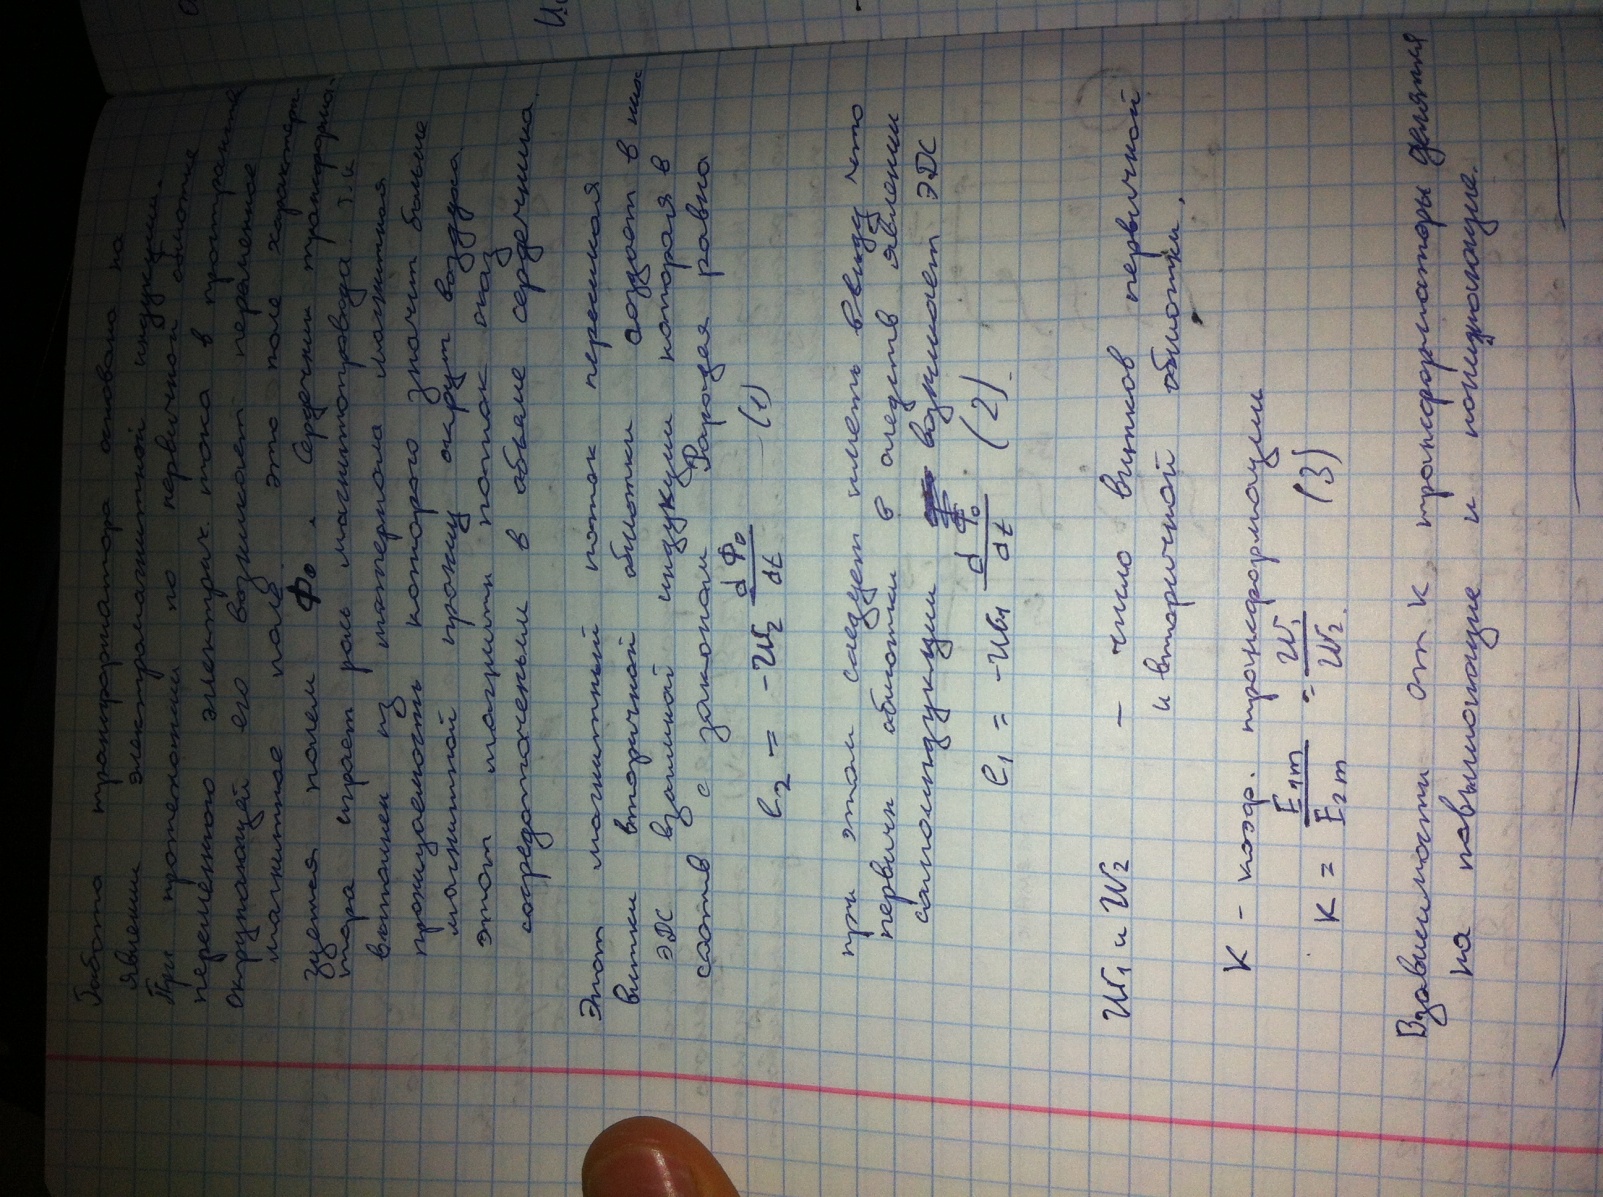 Работа трансформатора основана на
явлении электромагнитной индукции.
При протекании по первичной обмотке
переменного электрич. тока в пространстве
окружающей его возникает переменное
магнитное поле. это поле характери-
зуется полем Φ₀. Сердечник трансформа-
тора играет роль магнитопровода. т.к
выполнен из материала магнитная
проницаемость которого значит больше
магнитной прониц окруж воздуха.
этот магнитн поток оказ
сосредоточеным в объеме сердечника.
Этот магнитный поток пересекая
витки вторичной обмотки создает в них
ЭДС взаимной индукции которая в
соотв с законом Фарадея равна
e₂ = -W₂ dΦ₀/dt (1)
при этом следует иметь ввиду что
первичн обмотки в следств явлении
самоиндукции возникает ЭДС
e₁ = -W₁ dΦ₀/dt (2)
W₁ и W₂ - число витков первичной
и вторичной обмотки.
K - коэф. трансформации
K = E₁m/E₂m = W₁/W₂ (3)
Взависимости от K трансформаторы делятся
на повышающие и понижающие.